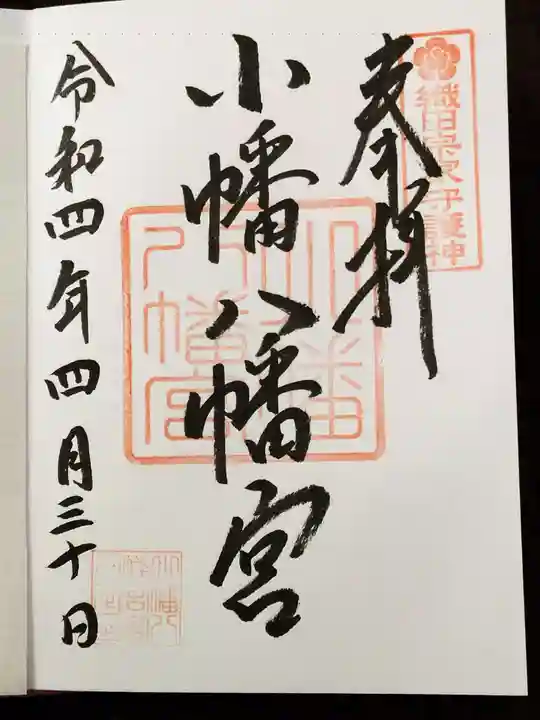 奉拝
織田宗家守護神
小幡八幡宮
小幡八幡宮
令和四年四月三十日